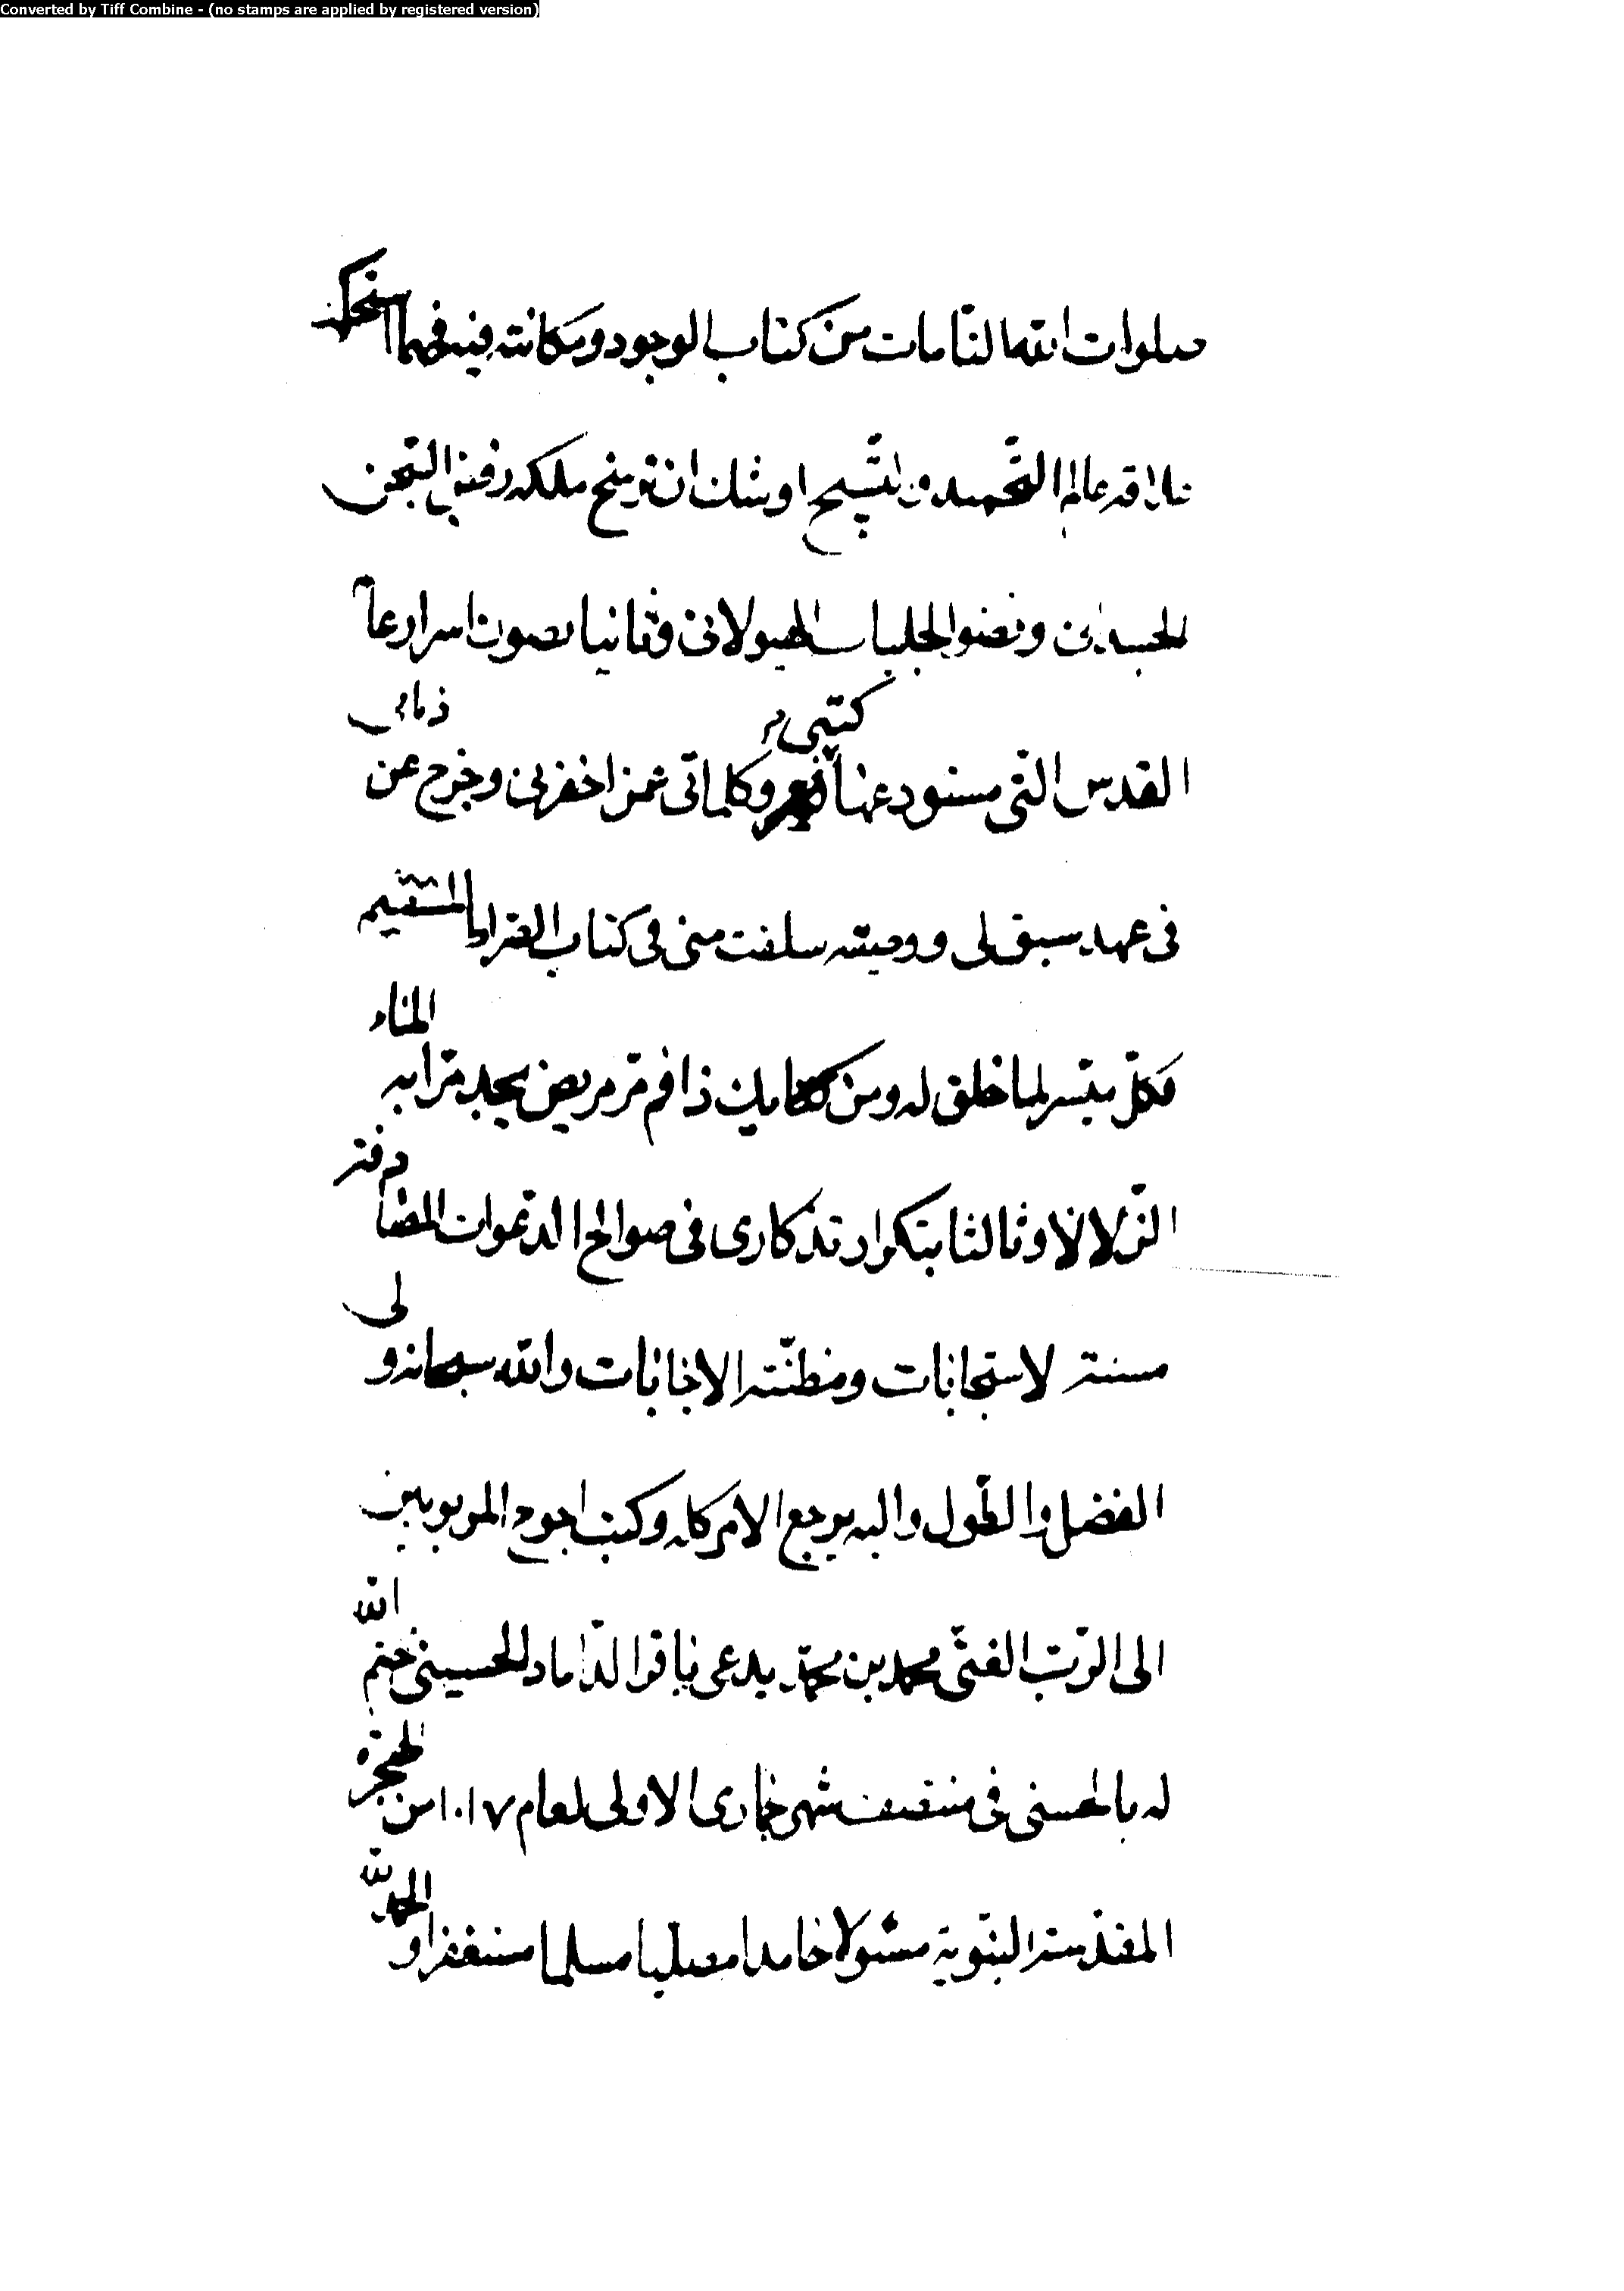 Converted by Tiff Combine - (no stamps are applied by registered version)
صلوات الله التامات من كتاب الوجود ومكانته فيه فهما
عالم التحميد و التسبيح اوشك ان ملكه رفض السجن
الجسدانى ونضو الجلباب الهيولانى وثانيا بصون اسرار عالم
كتبى ذمائى
القدس التى مستودعها وكلماتى عمن اخفرنى وخرج عن
فى عهد سبق لى ووصية سلفت منى فى كتاب الصراط المستقيم
فكل ميسر لما خلق له ومن يك ذا فم مر مريض يجد مرا به الماء
الزلالا وثالثا بتكرار تذكارى فى صوالح الدعوات المضا
دفتر
مسنة لاستجابات ومظنة الاجابات والله سبحانه و لى
الفضل والطول واليه يرجع الامر كله وكتب احوج المربوبين
الى الرب الغنى محمد بن محمد يدعى باقر الداماد الحسينى ختم الله
له بالحسنى فى منتصف شهر جمادى الاولى لعام ١٠١٧ من الهجرة
المقدسة النبوية مسئولا حامدا مصليا مسلما مستغفرا و الحمد لله